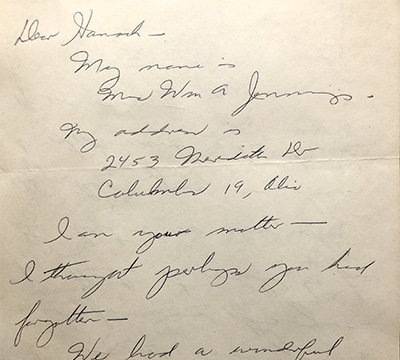 Dear Hannah —
My name is
Mrs Wm A Jennings.
My address is
2453 Meredith Dr
Columbus 19, Ohio
I am your mother —
I thought perhaps you had
forgotten —
We had a wonderful